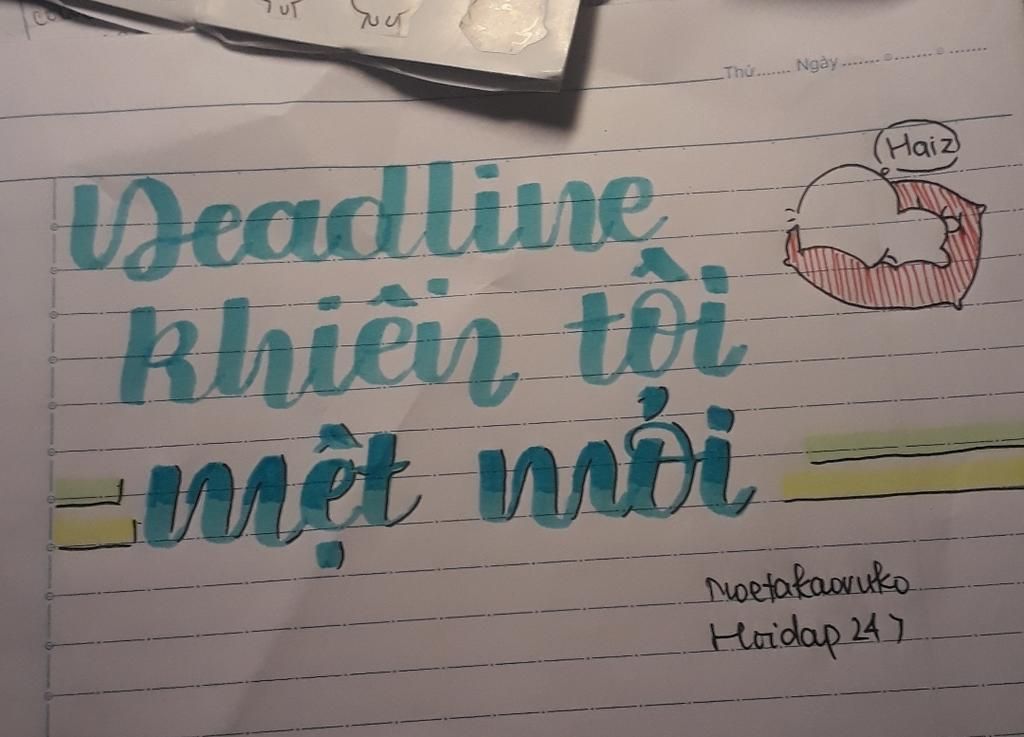 Thứ....... Ngày ....... o ....... o .......
Haiz
Deadline
khiến tôi
mệt mỏi
Moetakaoruko
Hoidap 247